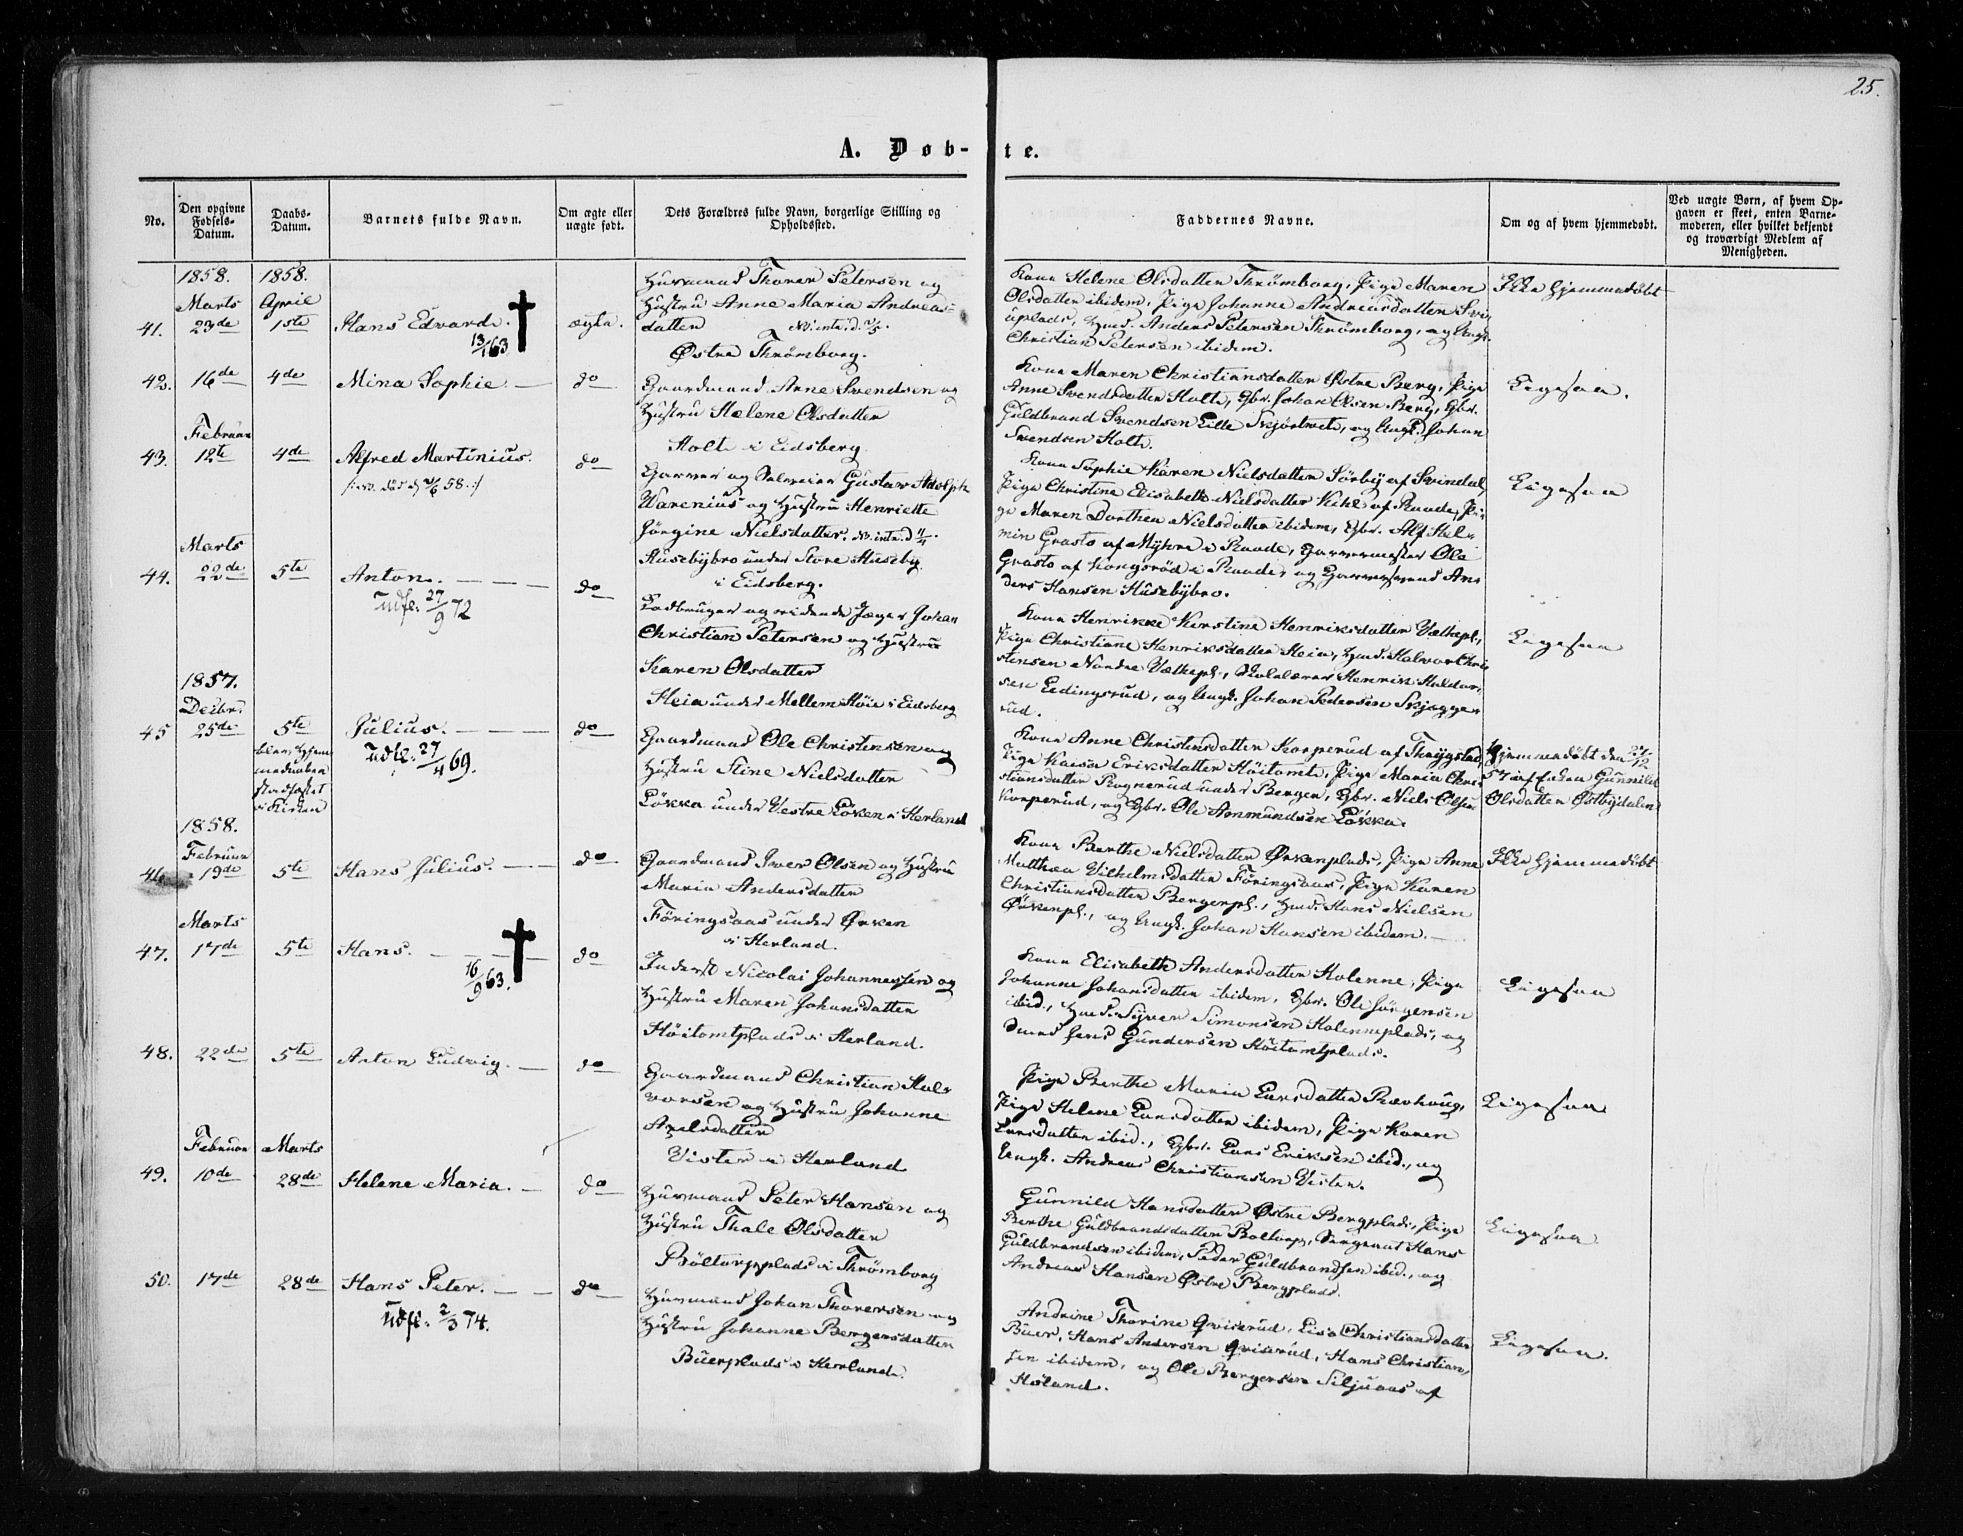 25.
A. Døb-te.
No.
Den opgivne Fødsels-Datum.
Daabs-Datum.
Barnets fulde Navn.
Om ægte eller uægte født.
Dets Forældres fulde Navn, borgerlige Stilling og Opholdssted.
Faddernes Navne.
Om og af hvem hjemmedøbt.
Ved uægte Børn, af hvem Opgaven er skeet, enten Barnemoderen, eller hvilket bekjendt og troværdigt Medlem af Menigheden.
1858. 1858.
Marts April
41. 23de 1ste Hans Edvard. ægte.
13/1 63
Huusmand Thorer Petersen og
Hustru Anne Maria Andreas-
datten
Østre Thrømborg.
Kone Helene Olsdatten Thrømborg, Pige Maren
Olsdatten ibidem, Pige Johanne Andreasdatten
Anders Petersen Thrømborg, og Ungk.
Christian Petersen ibidem.
Ikke hjemmedøbt
42. 16de 4de Mina Sophie. do
Gaardmand Arne Svendsen og
Hustru Helene Olsdatten
Holt i Eidsberg.
Kone Maren Christiansdatten Østre Berg, Pige
Anne Svendsdatten Holt, Gbr. Johan Olsen Berg, Gbr.
Guldbrand Svendsen Lille, og Ungk. Johan
Svendsen Holt.
Ligesaa.
Februar
43. 12te 4de Alfred Martinius. do
58.
Garver og Gustav Adolph
Warenius og Hustru Henriette
Jørgine Nielsdatter.
Husebybro under Store Huseby
i Eidsberg.
Kone Sophie Karen Nielsdatten Sörby af Svindal,
Pige Christine Elisabeth Nielsdatter af Raade, Pi-
ge Maren Dorthea Nielsdatten ibidem, Gbr. Alf
Grasto af Myhre i Raade, Garvermester Ole
Grasto af Kongsröd i Raade, og An-
ders Hansen Husebybro.
Ligesaa
Marts
44. 22de 5te Anton. do
Udfl. 27/9 72
Johan
Christian Petersen og Hustru
Karen Olsdatter
Heia under Mellem Höie i Eidsberg
Kone Henrikke Kirstine Henriksdatten
Pige Christiane Henriksdatten Heia, Halvor Chri-
stensen Nordre Henrik Haldor-
sen og Ungk. Johan Pedersen Skjøgge-
rud.
Ligesaa
1857.
Decbr.
45 25de 5te Julius. do
Udfl. 27/4 69.
Gaardmand Ole Christensen og
Hustru Stine Nielsdatten
Løkka under Vestre Løken i Herland
Kone Anne Christensdatten Korperud af Thrygstad,
Pige Kaisa Eriksdatten Höitomt, Pige Maria Chri-
stiansdatten under Bergen, Gbr. Niels Olsen
Korperud, og Gbr. Ole Aanmundsen Løkka.
Hjemmedøbt den 27/12
57 af Enken Gunnild
Olsdatten Østbydalen
1858.
Februar
46. 19de 5te Hans Julius. do
Gaardmand Iver Olsen og Hustru
Maria Andersdatten
Föringsaas under Ørken
i Herland.
Kone Berthe Nielsdatten Ørkenplads, Pige Anne
Matthea Vilhelmsdatten Föringsaas, Pige Karen
Christiansdatten Bergerpl., Hmd. Hans Nielsen
Örkenpl., og Ungk. Johan Hansen ibidem.
Ikke hjemmedøbt
Marts
47. 17de 5te Hans. do
16/9 63.
Inderst Nicolai Johannessen og
Hustru Maren Johansdatten
Höitomtplads i Herland.
Kone Elisabeth Andersdatten Holenne, Pige
Johanne Johansdatten ibidem, Gbr. Ole Jörgensen
ibid., Hmd. Syver Simonsen Holenneplads, og
Gundersen Höitomtplads.
Ligesaa
48. 22de 5te Anton Ludvig. do
Gaardmand Christian Hal-
vorsen og Hustru Johanne
Axelsdatten
Vister i Herland
Pige Berthe Maria Larsdatten Ravhaug,
Pige Helene Larsdatten ibidem, Pige Karen
Larsdatten ibid., Gbr. Lars Eriksen ibid., og
Ungk. Andreas Christiansen Vister.
Ligesaa
Februar Marts
49. 10de 28de Helene Maria. do
Huusmand Peter Hansen og
Hustru Thale Olsdatten
Böltorpplads i Thrømborg
Gunnild Hansdatten Østre Bergplads, Pige
Berthe Guldbrandsdatten Boltorp, Sergeant Hans
Guldbrandsen ibidem, Peder Guldbrandsen ibid., og
Andreas Hansen Østre Bergplads.
Ligesaa
50. 17de 28de Hans Peter. do
Udfl. 2/3 74.
Huusmand Johan Thorersen og
Hustru Johanne Bergersdatten
Buerplads i Herland.
Andrine Thorine Qviserud, Lisa Christiansdatten
Buer, Hans Andersen Qviserud, Hans Christian-
sen ibidem, og Ole Bergersen Siljuaas af
Høland.
Ligesaa.